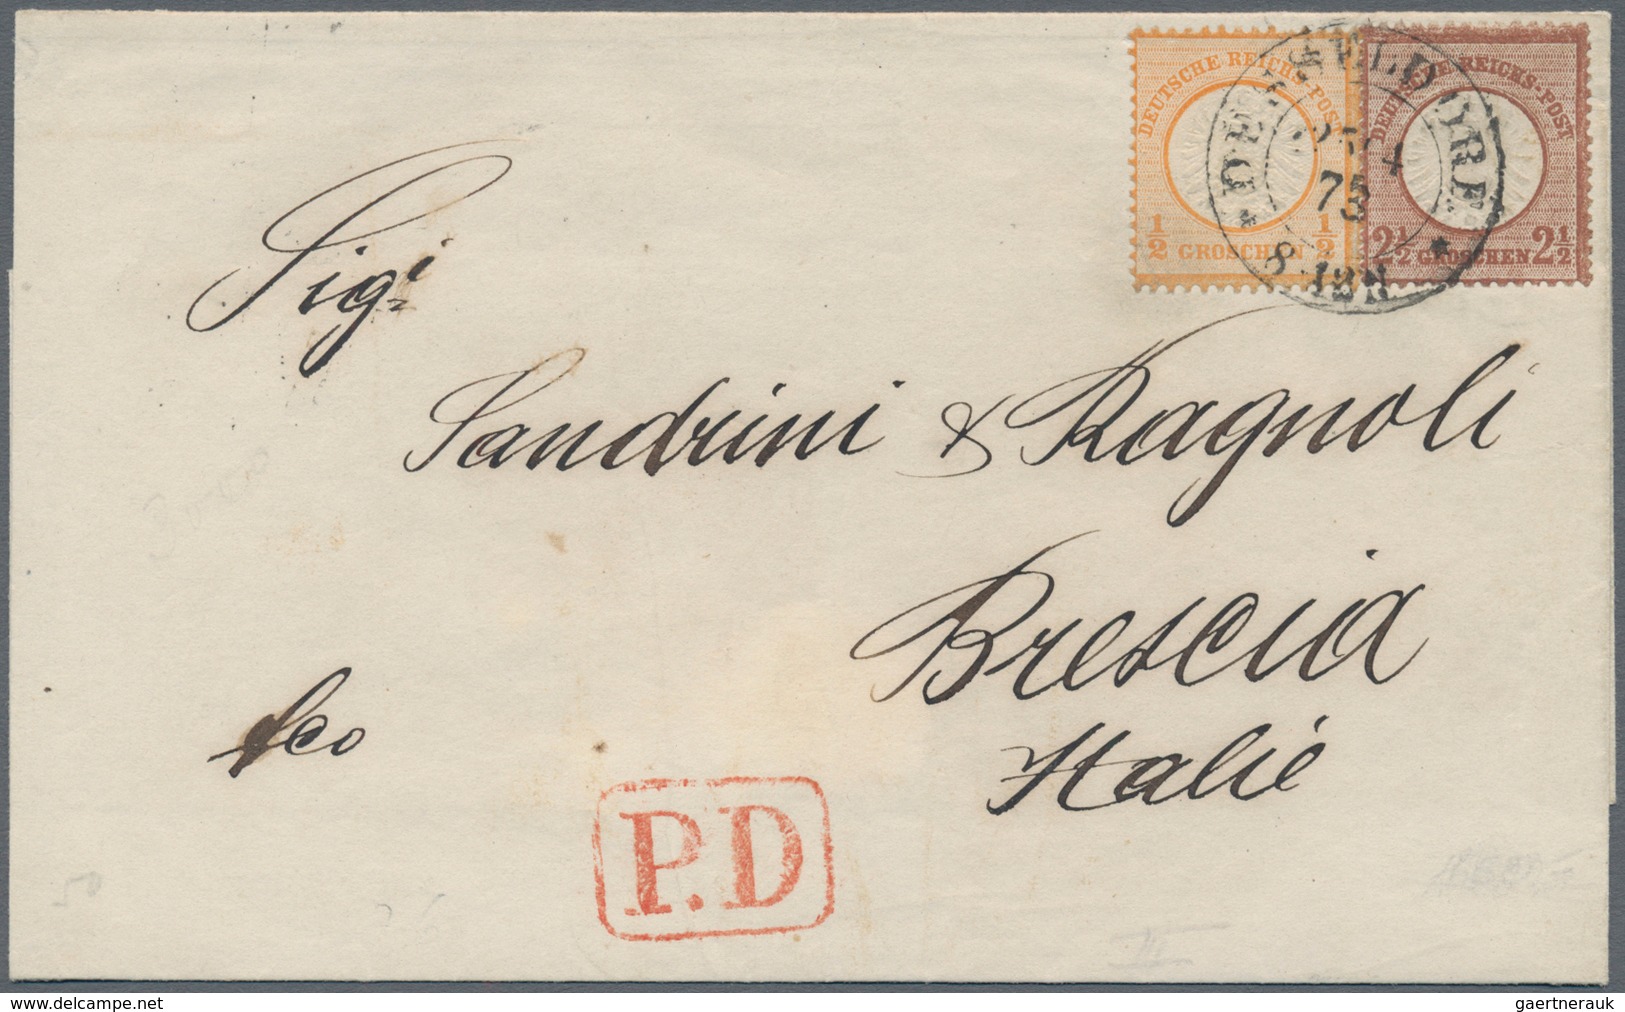 DEUTSCHE REICHS-POST
½ GROSCHEN ½
DEUTSCHE REICHS-POST
2½ GROSCHEN 2½
75
8-12 N
Sigi
Sandrini & Ragnoli
Brescia
Italie
fco
P.D
delcampe.net
gaertnerauk